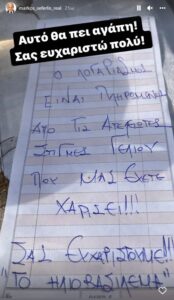 markos_seferlis_real 21ω
Αυτό θα πει αγάπη!
Σας ευχαριστώ πολύ!
Ο ΛΟΓΑΡΙΑΣΜΟΣ
ΕΙΝΑΙ ΠΛΗΡΩΜΕΝΟΣ
ΑΠΟ ΤΙΣ ΑΤΕΛΕΙΩΤΕΣ
ΣΤΙΓΜΕΣ ΓΕΛΙΟΥ
ΠΟΥ ΜΑΣ ΕΧΕΤΕ
ΧΑΡΙΣΕΙ!!!
ΣΑΣ ΕΥΧΑΡΙΣΤΟΥΜΕ!!
"ΤΟ ΗΛΙΟΒΑΣΙΛΕΜΑ"